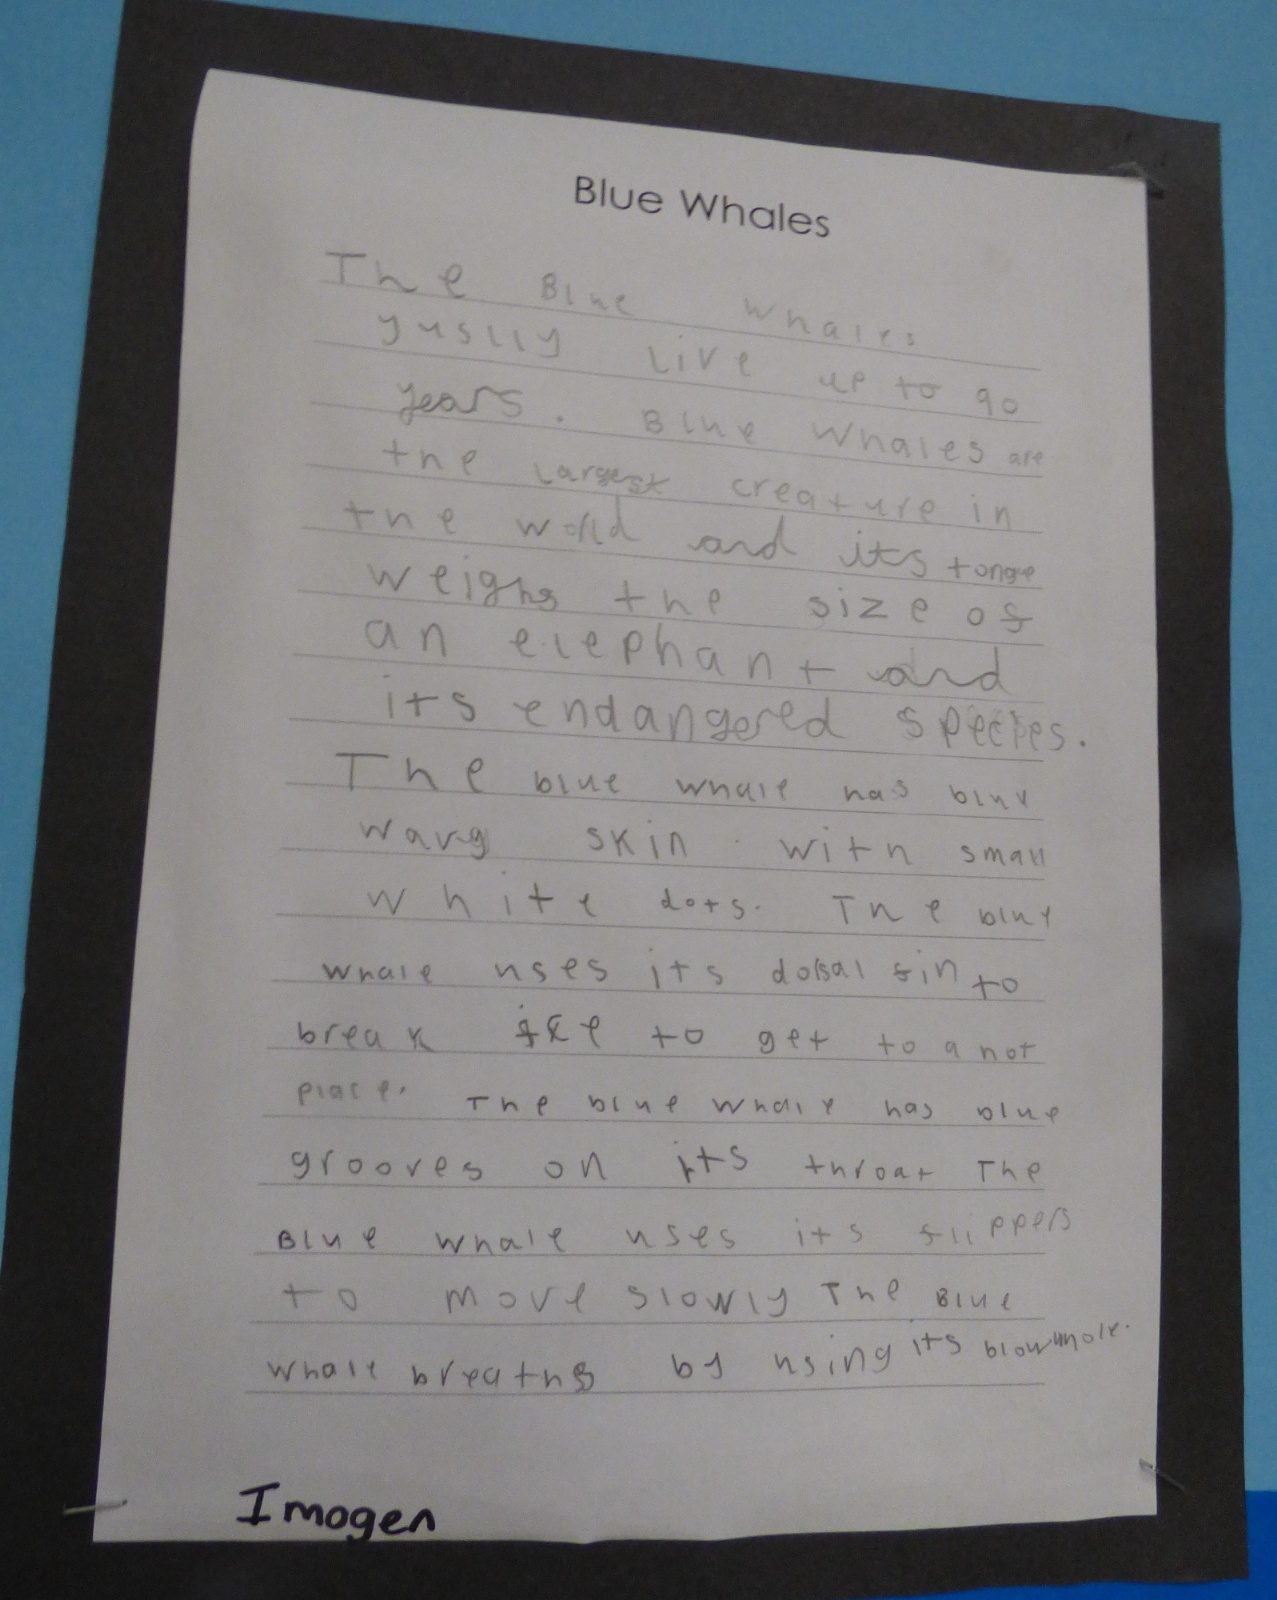 Blue Whales
The Blue whales
yuslly Live up to 90
years. Blue Whales are
the largest creature in
the world and its tonge
weighs the size of
an elephant and
its endangered species.
The blue whale has blue
wavy skin with small
white dots. The blue
whale uses its dorsal fin to
break ice to get to a hot
place. The blue whale has blue
grooves on its throat The
Blue whale uses its flippers
to move slowly The Blue
whale breaths by using its blowhole.
Imogen